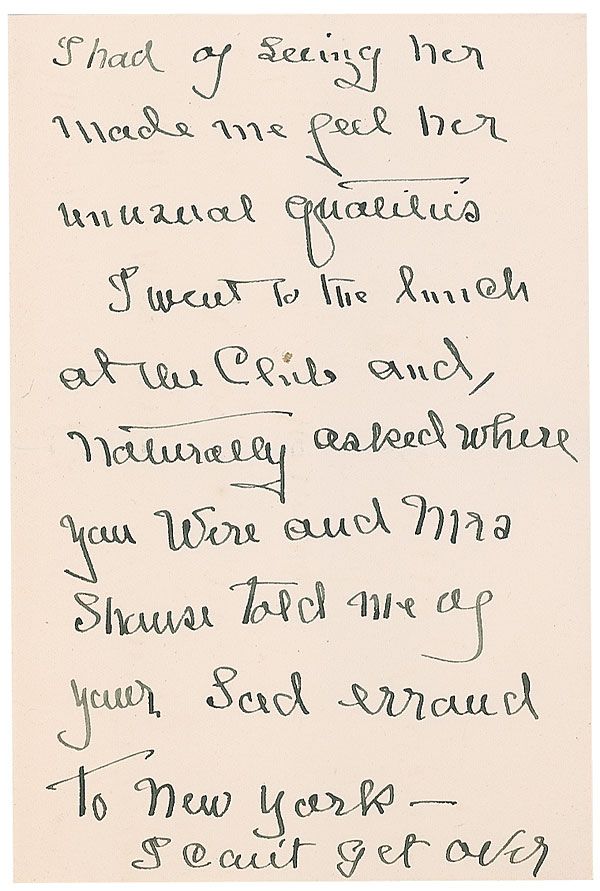 I had of seeing her
made me feel her
unusual qualities
I went to the lunch
at the Club and,
naturally asked where
you were and Mrs
Shouse told me of
your sad errand
to New York —
I can't get over